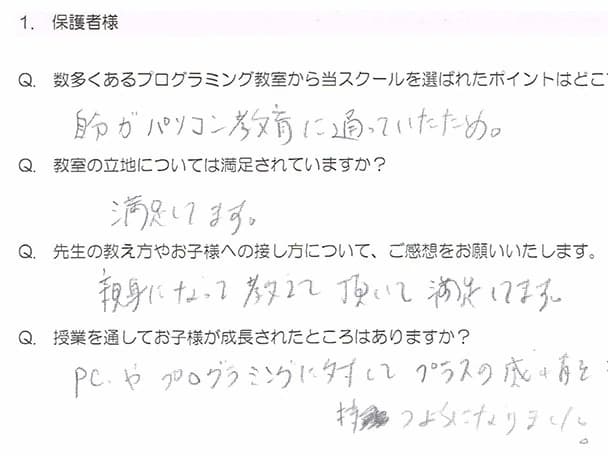 1. 保護者様
Q. 数多くあるプログラミング教室から当スクールを選ばれたポイントはどこ
自分がパソコン教育に通っていたため。
Q. 教室の立地については満足されていますか？
満足してます。
Q. 先生の教え方やお子様への接し方について、ご感想をお願いいたします。
親身になって教えて頂いて満足してます。
Q. 授業を通してお子様が成長されたところはありますか？
PC.やプログラミングに対してプラスの感情を
持つようになりました。